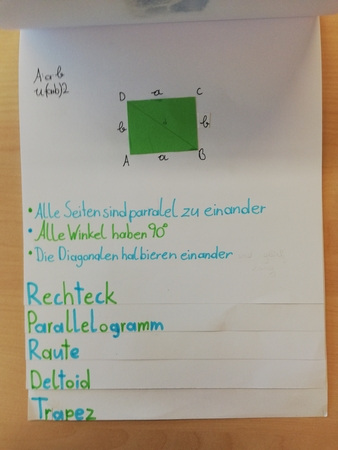 A·a·b
u(a+b)2
D a C
b b
A a B
• Alle Seiten sind parralel zu einander
• Alle Winkel haben 90°
• Die Diagonalen halbieren einander
Rechteck
Parallelogramm
Raute
Deltoid
Trapez